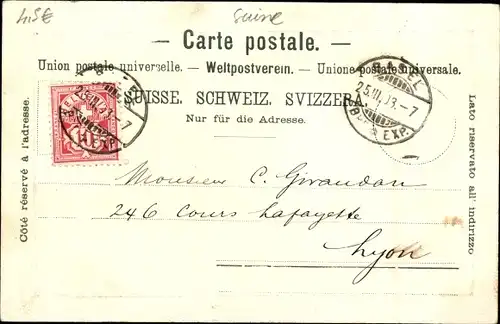 4,5€
Suisse
— Carte postale. —
Union postale universelle. — Weltpostverein. — Unione postale universale.
SUISSE. SCHWEIZ. SVIZZERA.
Nur für die Adresse.
Côté réservé à l'adresse.
Lato riservato all' indirizzo
HELVETIA
BASEL
25.III.
-7
EXP.
BASEL
25.III.
-7
EXP.
Monsieur C. Girandon
246 Cours Lafayette
Lyon